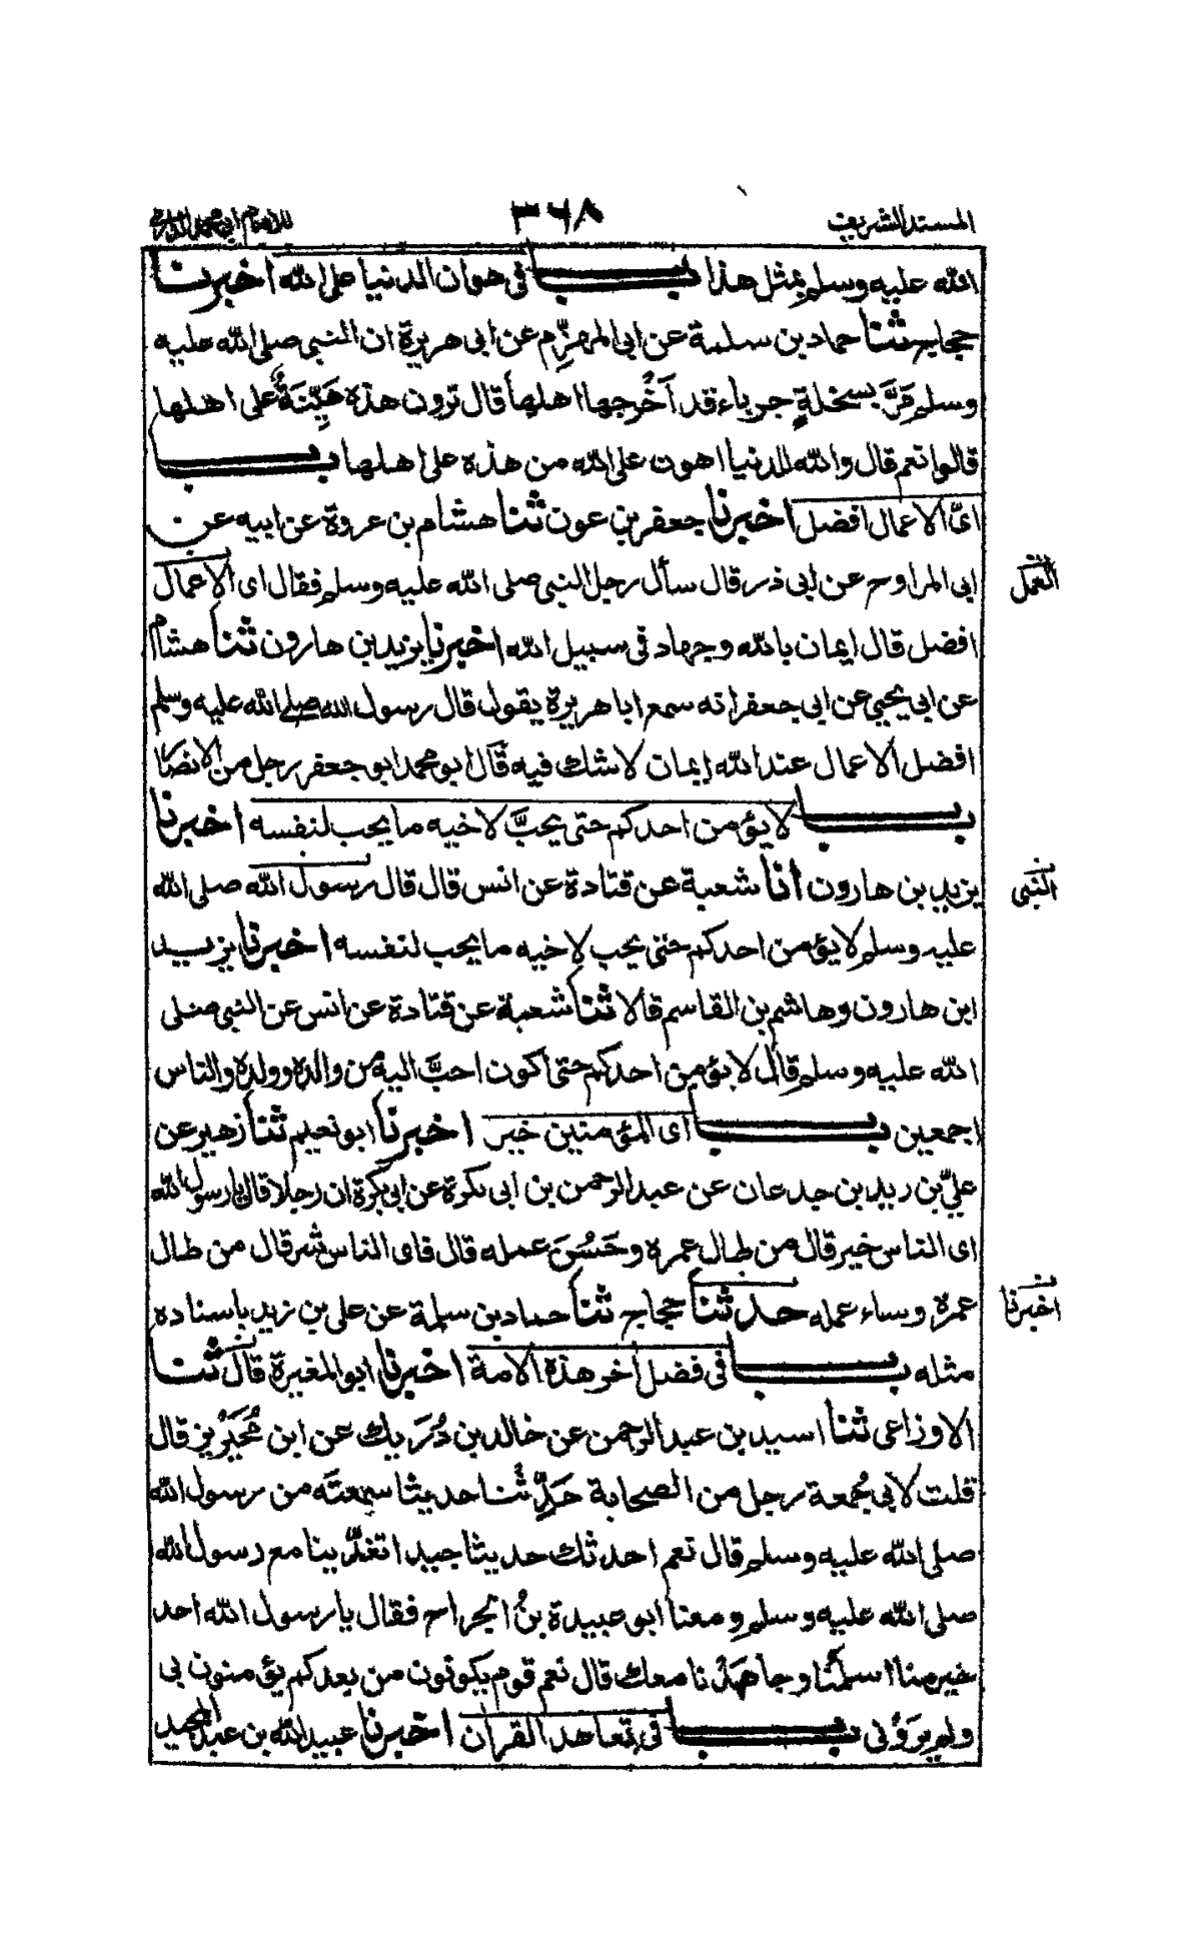 المسند الشريف
٣٦٨
للامام ابي محمد الدارمي
الله عليه وسلم بمثل هذا باب في هوان الدنيا على الله اخبرنا
حجاج ثنا حماد بن سلمة عن ابي المهزّم عن ابي هريرة ان النبي صلى الله عليه
وسلم مَرَّ بسخلةٍ جرباء قد اَخْرجها اهلها قال ترون هذه هَيِّنَةٌ على اهلها
قالوا نعم قال والله للدنيا اهون على الله من هذه على اهلها باب
ايّ الاعمال افضل اخبرنا جعفر بن عون ثنا هشام بن عروة عن ابيه عن
ابي المراوح عن ابي ذر قال سأل رجل النبي صلى الله عليه وسلم فقال اي الاعمال
العمل
افضل قال ايمان بالله وجهاد في سبيل الله اخبرنا يزيد بن هارون ثنا هشام
عن ابي يحيى عن ابي جعفر انه سمع ابا هريرة يقول قال رسول الله صلى الله عليه وسلم
افضل الاعمال عند الله ايمان لا شك فيه قال ابو محمد ابو جعفر رجل من الانصار
باب لا يؤمن احدكم حتى يحبَّ لاخيه ما يحب لنفسه اخبرنا
يزيد بن هارون انا شعبة عن قتادة عن انس قال قال رسول الله صلى الله
النبي
عليه وسلم لا يؤمن احدكم حتى يحب لاخيه ما يحب لنفسه اخبرنا يزيد
ابن هارون وهاشم بن القاسم قالا ثنا شعبة عن قتادة عن انس عن النبي صلى
الله عليه وسلم قال لا يؤمن احدكم حتى اكون احبَّ اليه من والده وولده والناس
اجمعين باب اى المؤمنين خير اخبرنا ابو نعيم ثنا زهير عن
عليّ بن زيد بن جدعان عن عبد الرحمن بن ابي بكرة عن ابي بكرة ان رجلا قال يا رسول الله
اى الناس خير قال من طال عمره وحَسُنَ عمله قال فاى الناس شر قال من طال
عمره وساء عمله حدثنا حجاج ثنا حماد بن سلمة عن علي بن زيد باسناده
اخبرنا
مثله باب في فضل آخر هذه الامة اخبرنا ابو المغيرة قال ثنا
الاوزاعي ثنا اسيد بن عبد الرحمن عن خالد بن دُرَيك عن ابن مُحَيْرِيز قال
قلت لابي جُمعة رجل من الصحابة حَدِّثْنا حديثا سمِعتَه من رسول الله
صلى الله عليه وسلم قال نعم احدثك حديثا جيدا تغدَّينا مع رسول الله
صلى الله عليه وسلم ومعنا ابو عبيدة بنُ الجراح فقال يا رسول الله احد
خير منا اسلَمْنا وجاهَدْنا معك قال نعم قوم يكونون من بعدكم يؤمنون بي
ولم يرَوْني باب في تعاهد القران اخبرنا عبيد الله بن عبد المجيد